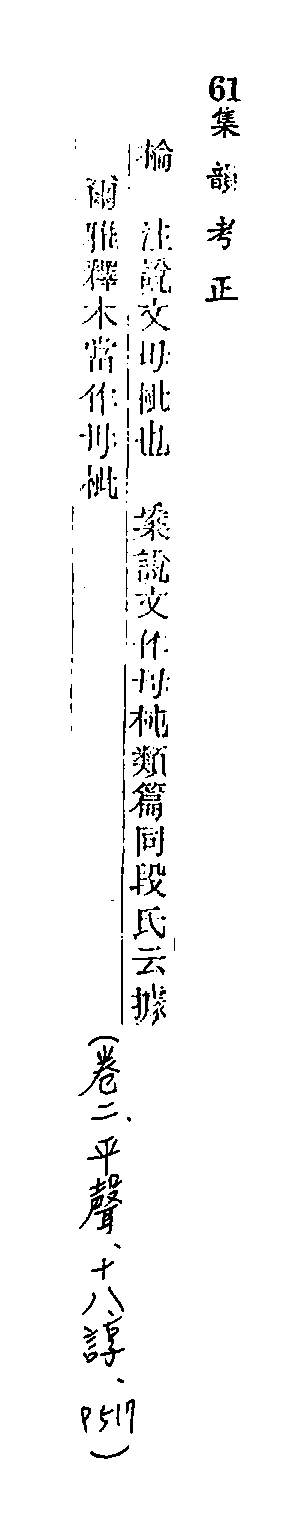 61
集韻考正
棆 注說文毋枇也 案說文作母杶類篇同段氏云據
爾雅釋木當作毋枇
(卷二、平聲、十八諄、P517)